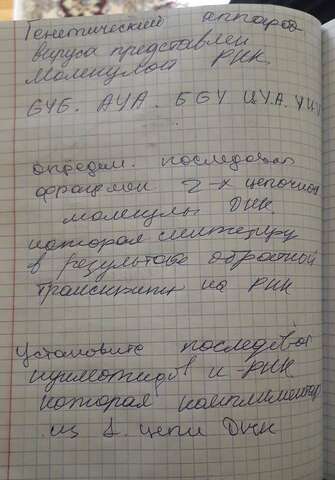 Генетический аппарат
вируса представлен
молекулой РНК.
ГУГ. АУА. ГГУ ЦУА. УЦУ
определ. последоват
фрагмен 2-х цепочной
молекулы ДНК.
которая синтезиру
в результате обратной
транскрипт на РНК
Установите последоват
нуклеотидов и-РНК
которая комплиментар
из 1. цепи ДНК